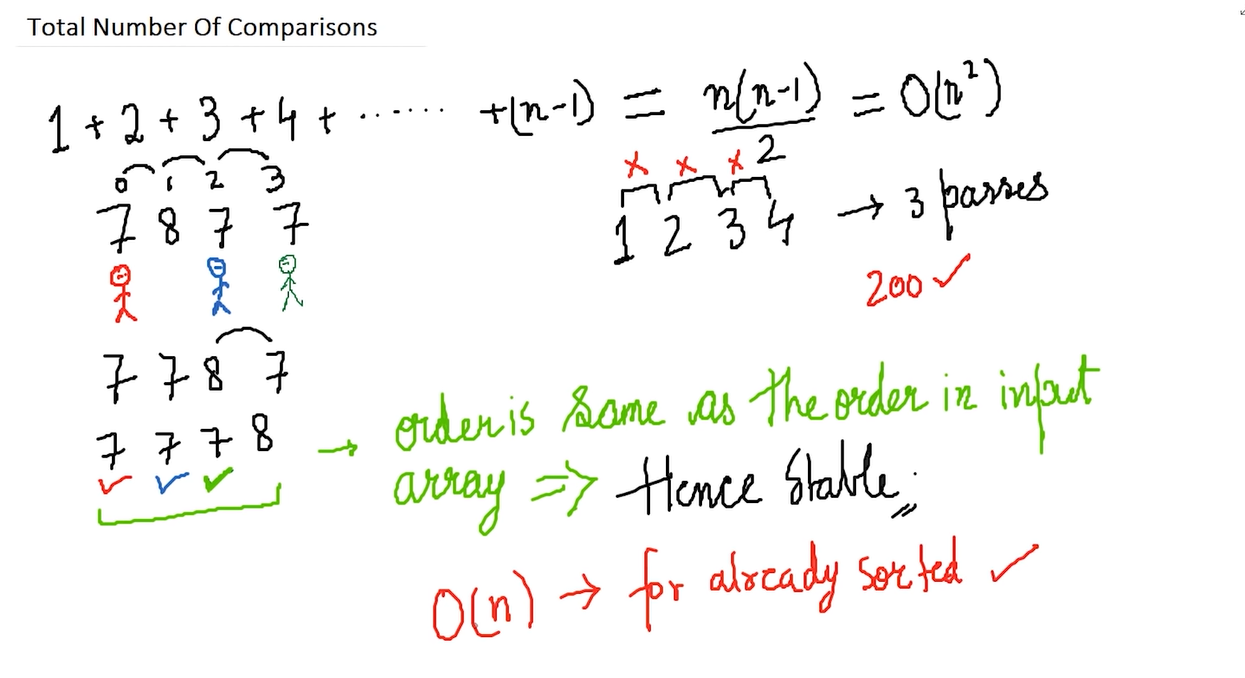 Total Number Of Comparisons
1 + 2 + 3 + 4 + ........ +(n-1) = n(n-1)/2 = O(n²)
0 1 2 3
7 8 7 7
x x x
1 2 3 4 → 3 passes
200 ✓
7 7 8 7
7 7 7 8 → order is same as the order in input
array => Hence Stable.
O(n) → for already sorted ✓